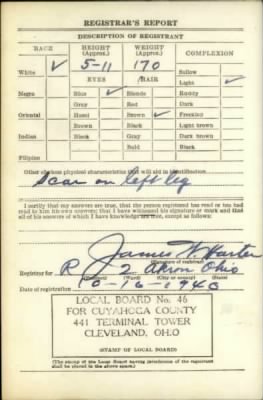 REGISTRAR'S REPORT
DESCRIPTION OF REGISTRANT
RACE HEIGHT (Approx.) WEIGHT (Approx.) COMPLEXION
White ✓ 5-11 170 Sallow
EYES HAIR Light ✓
Negro Blue ✓ Blonde Ruddy
Gray Red Dark
Oriental Hazel Brown ✓ Freckled
Brown Black Light brown
Indian Black Gray Dark brown
Bald Black
Filipino
Other obvious physical characteristics that will aid in identification
Scar on left leg
I certify that my answers are true; that the person registered has read or has had
read to him his own answers; that I have witnessed his signature or mark and that
all of his answers of which I have knowledge are true, except as follows:
James W Harter
(Signature of registrar)
Registrar for R 2 Akron Ohio
(Precinct) (Ward) (City or county) (State)
Date of registration 10-16-1940
LOCAL BOARD No. 46
FOR CUYAHOGA COUNTY
441 TERMINAL TOWER
CLEVELAND, OHIO
(STAMP OF LOCAL BOARD)
(The stamp of the Local Board having jurisdiction of the registrant
shall be placed in the above space.)